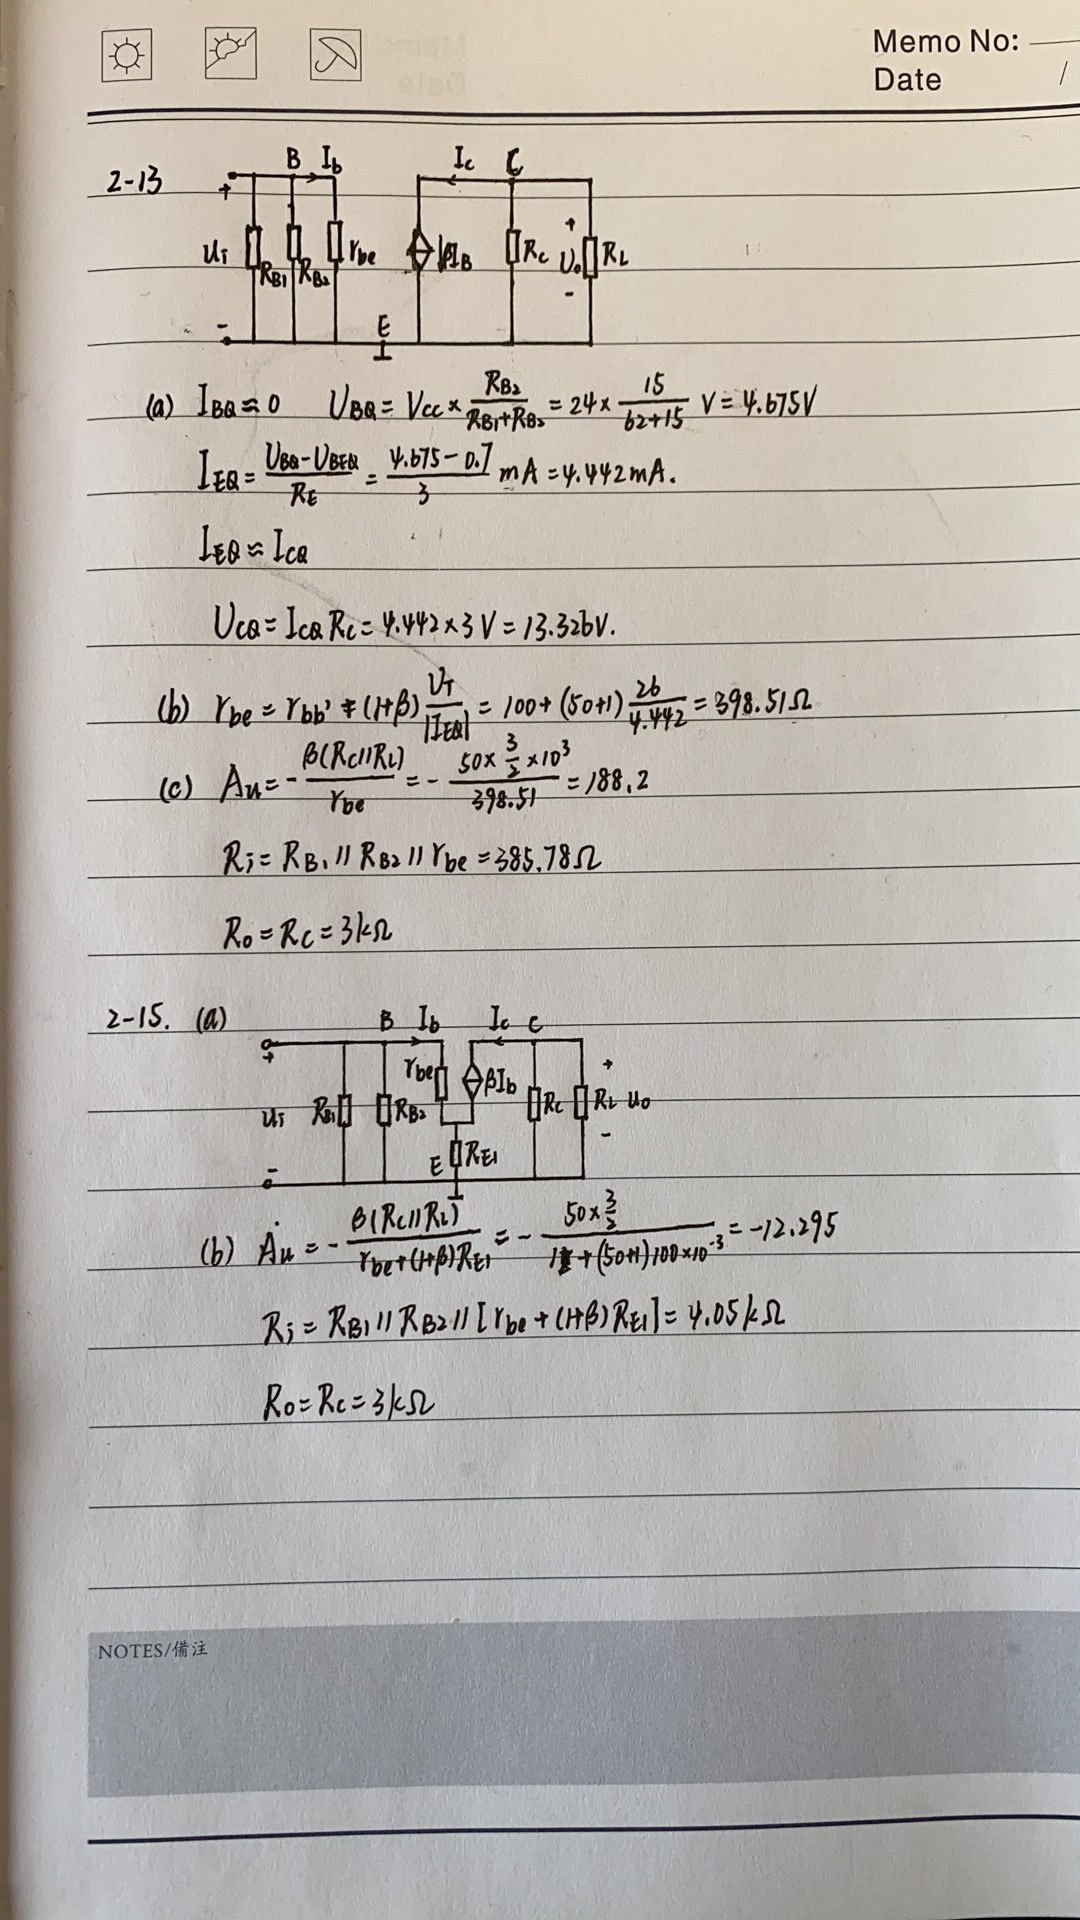 Memo No:
Date /
2-13
B I_b I_c C
+ u_i R_B1 R_B2 r_be βI_B R_C + U_o - R_L
- E
(a) I_BQ ≈ 0 U_BQ = V_CC × R_B2/(R_B1+R_B2) = 24 × 15/(62+15) V = 4.675V
I_EQ = (U_BQ - U_BEQ)/R_E = (4.675 - 0.7)/3 mA = 4.442mA.
I_EQ ≈ I_CQ
U_CQ = I_CQ R_C = 4.442 × 3 V = 13.326V.
(b) r_be = r_bb' + (1+β) U_T/|I_EQ| = 100 + (50+1) 26/4.442 = 398.51Ω
(c) A_u = - β(R_C//R_L)/r_be = - (50 × 3/2 × 10^3)/398.51 = 188.2
R_i = R_B1 // R_B2 // r_be = 385.78Ω
R_o = R_C = 3kΩ
2-15. (a)
B I_b I_c C
+ u_i - R_B1 R_B2 r_be βI_b R_C R_L + u_o -
E R_E1
(b) Ȧ_u = - β(R_C//R_L)/(r_be+(1+β)R_E1) = - (50 × 3/2)/(1+(50+1)100×10^-3) = -12.295
R_i = R_B1 // R_B2 // [r_be + (1+β)R_E1] = 4.05kΩ
R_o = R_C = 3kΩ
NOTES/備注